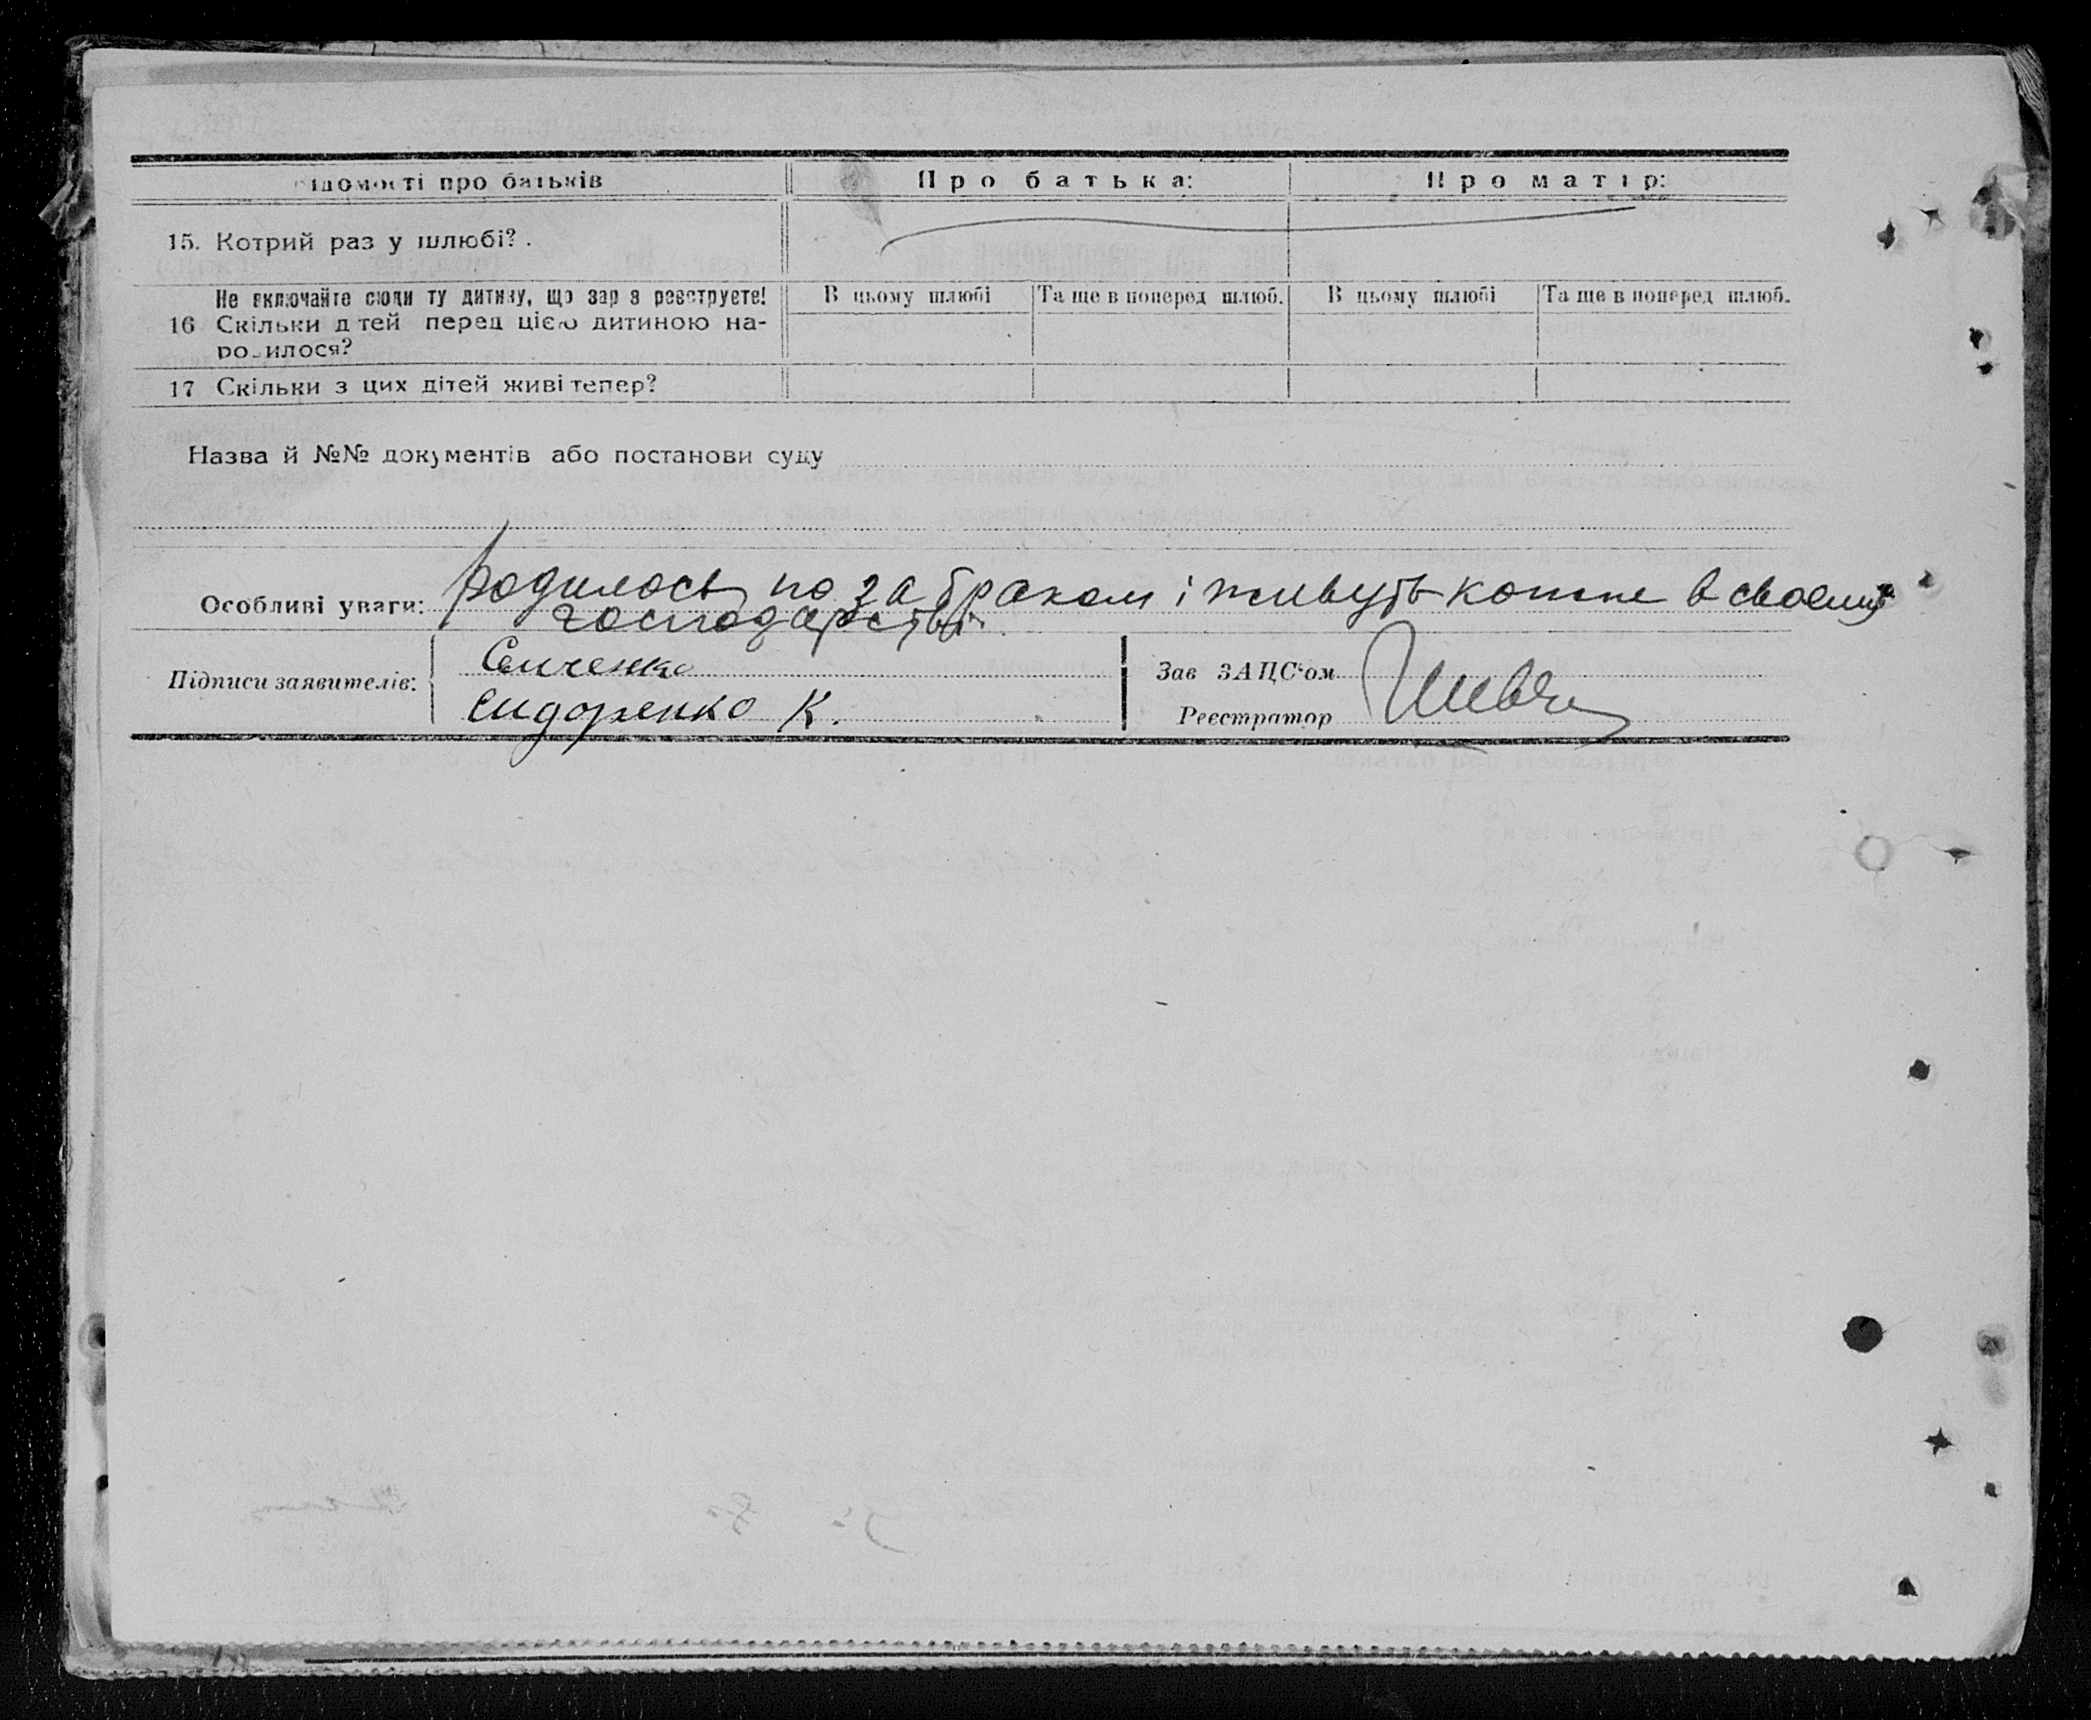 Відомості про батьків
Про батька:
Про матір:
15. Котрий раз у шлюбі?
Не включайте сюди ту дитину, що зараз реєструєте!
В цьому шлюбі
Та ще в поперед шлюб.
В цьому шлюбі
Та ще в поперед шлюб.
16 Скільки дітей перед цією дитиною на-
родилося?
17 Скільки з цих дітей живі тепер?
Назва й №№ документів або постанови суду
Особливі уваги: родилось поза браком і живуть кожне в своему
господарстві
Підписи заявителів:
Сидоренко К.
Зав ЗАЦС‘ом
Реєстратор